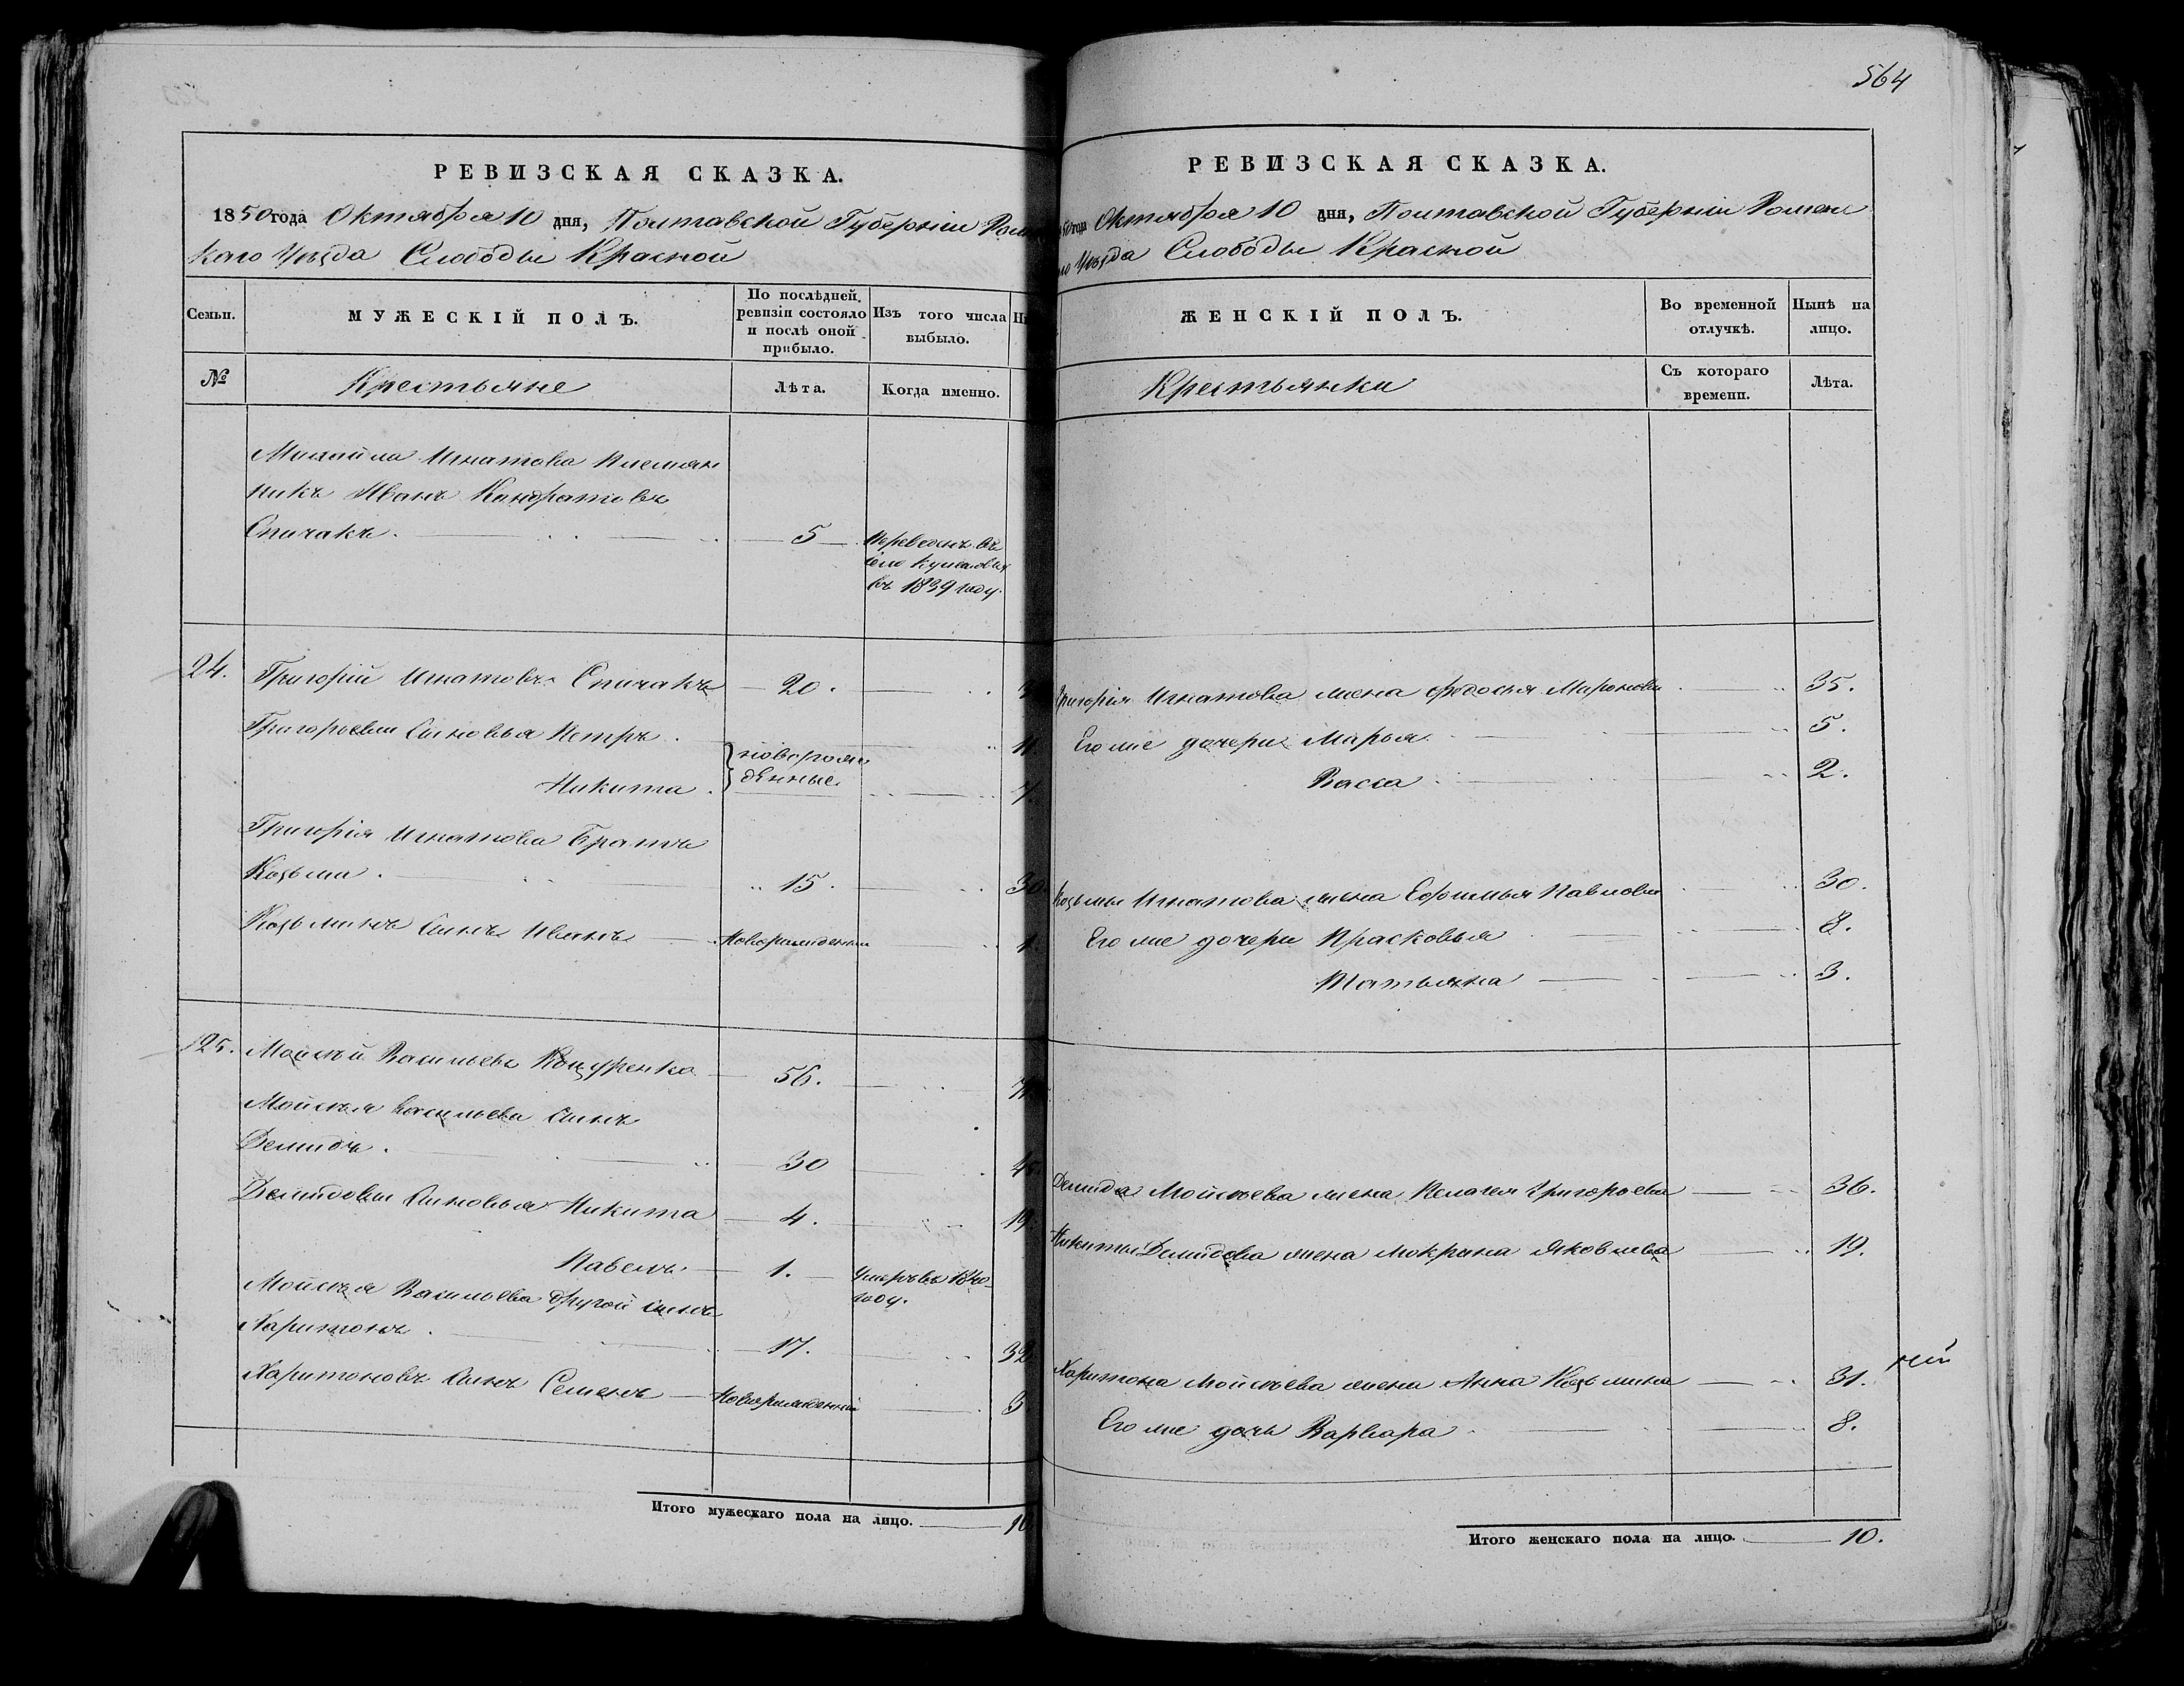 РЕВИЗСКАЯ СКАЗКА.
1850 года Октября 10 дня, Полтавской Губернiи Ром
каго Уѣзда Слободы Красной
Семьи.
МУЖЕСКIЙ ПОЛЪ.
По послѣдней ревизiи состояло и послѣ оной прибыло.
Изъ того числа выбыло.
№
Крестьяне
Лѣта.
Когда именно.
Михайла Игнатова племян
никъ Иванъ Кондратовъ
Спичакъ. 5
Переведенъ въ
село
въ 1839 году.
24. Григорiй Игнатовъ Спичакъ 20.
Григорьевы сыновья Петръ. новорож
денные.
Никита. 7
Григорiя Игнатова братъ
Козьма. 15. 30
Козьминъ сынъ Иванъ Новорожденный 1
125. Мойсей Васильевъ 56.
Мойсея Васильева сынъ
Демидъ. 30 45
Демидовы сыновья Никита 4. 19
Павелъ 1. Умеръ въ 1840
году.
Мойсея Васильева другой сынъ
Харитонъ. 17. 32
Харитоновъ сынъ Семенъ Новорожденный 3
Итого мужескаго пола на лицо. 10
564
РЕВИЗСКАЯ СКАЗКА.
50 года Октября 10 дня, Полтавской Губернiи Ромен
го Уѣзда Слободы Красной
ЖЕНСКIЙ ПОЛЪ.
Во временной отлучкѣ.
Нынѣ на лицо.
Крестьянки
Съ котораго времени.
Лѣта.
Григорiя Игнатова жена Федосья Миронова 35.
Его же дочери Марья 5.
Васса 2.
Козьмы Игнатова жена Ефимья Павлова 30.
Его же дочери Прасковья 8.
Татьяна 3.
Демида Мойсеева жена Пелагея Григорьева 36.
Никиты Демидова жена Мокрина Яковлева 19.
Харитона Мойсеева жена Анна Козьмина 31.
Его же дочь Варвара 8.
Итого женскаго пола на лицо. 10.